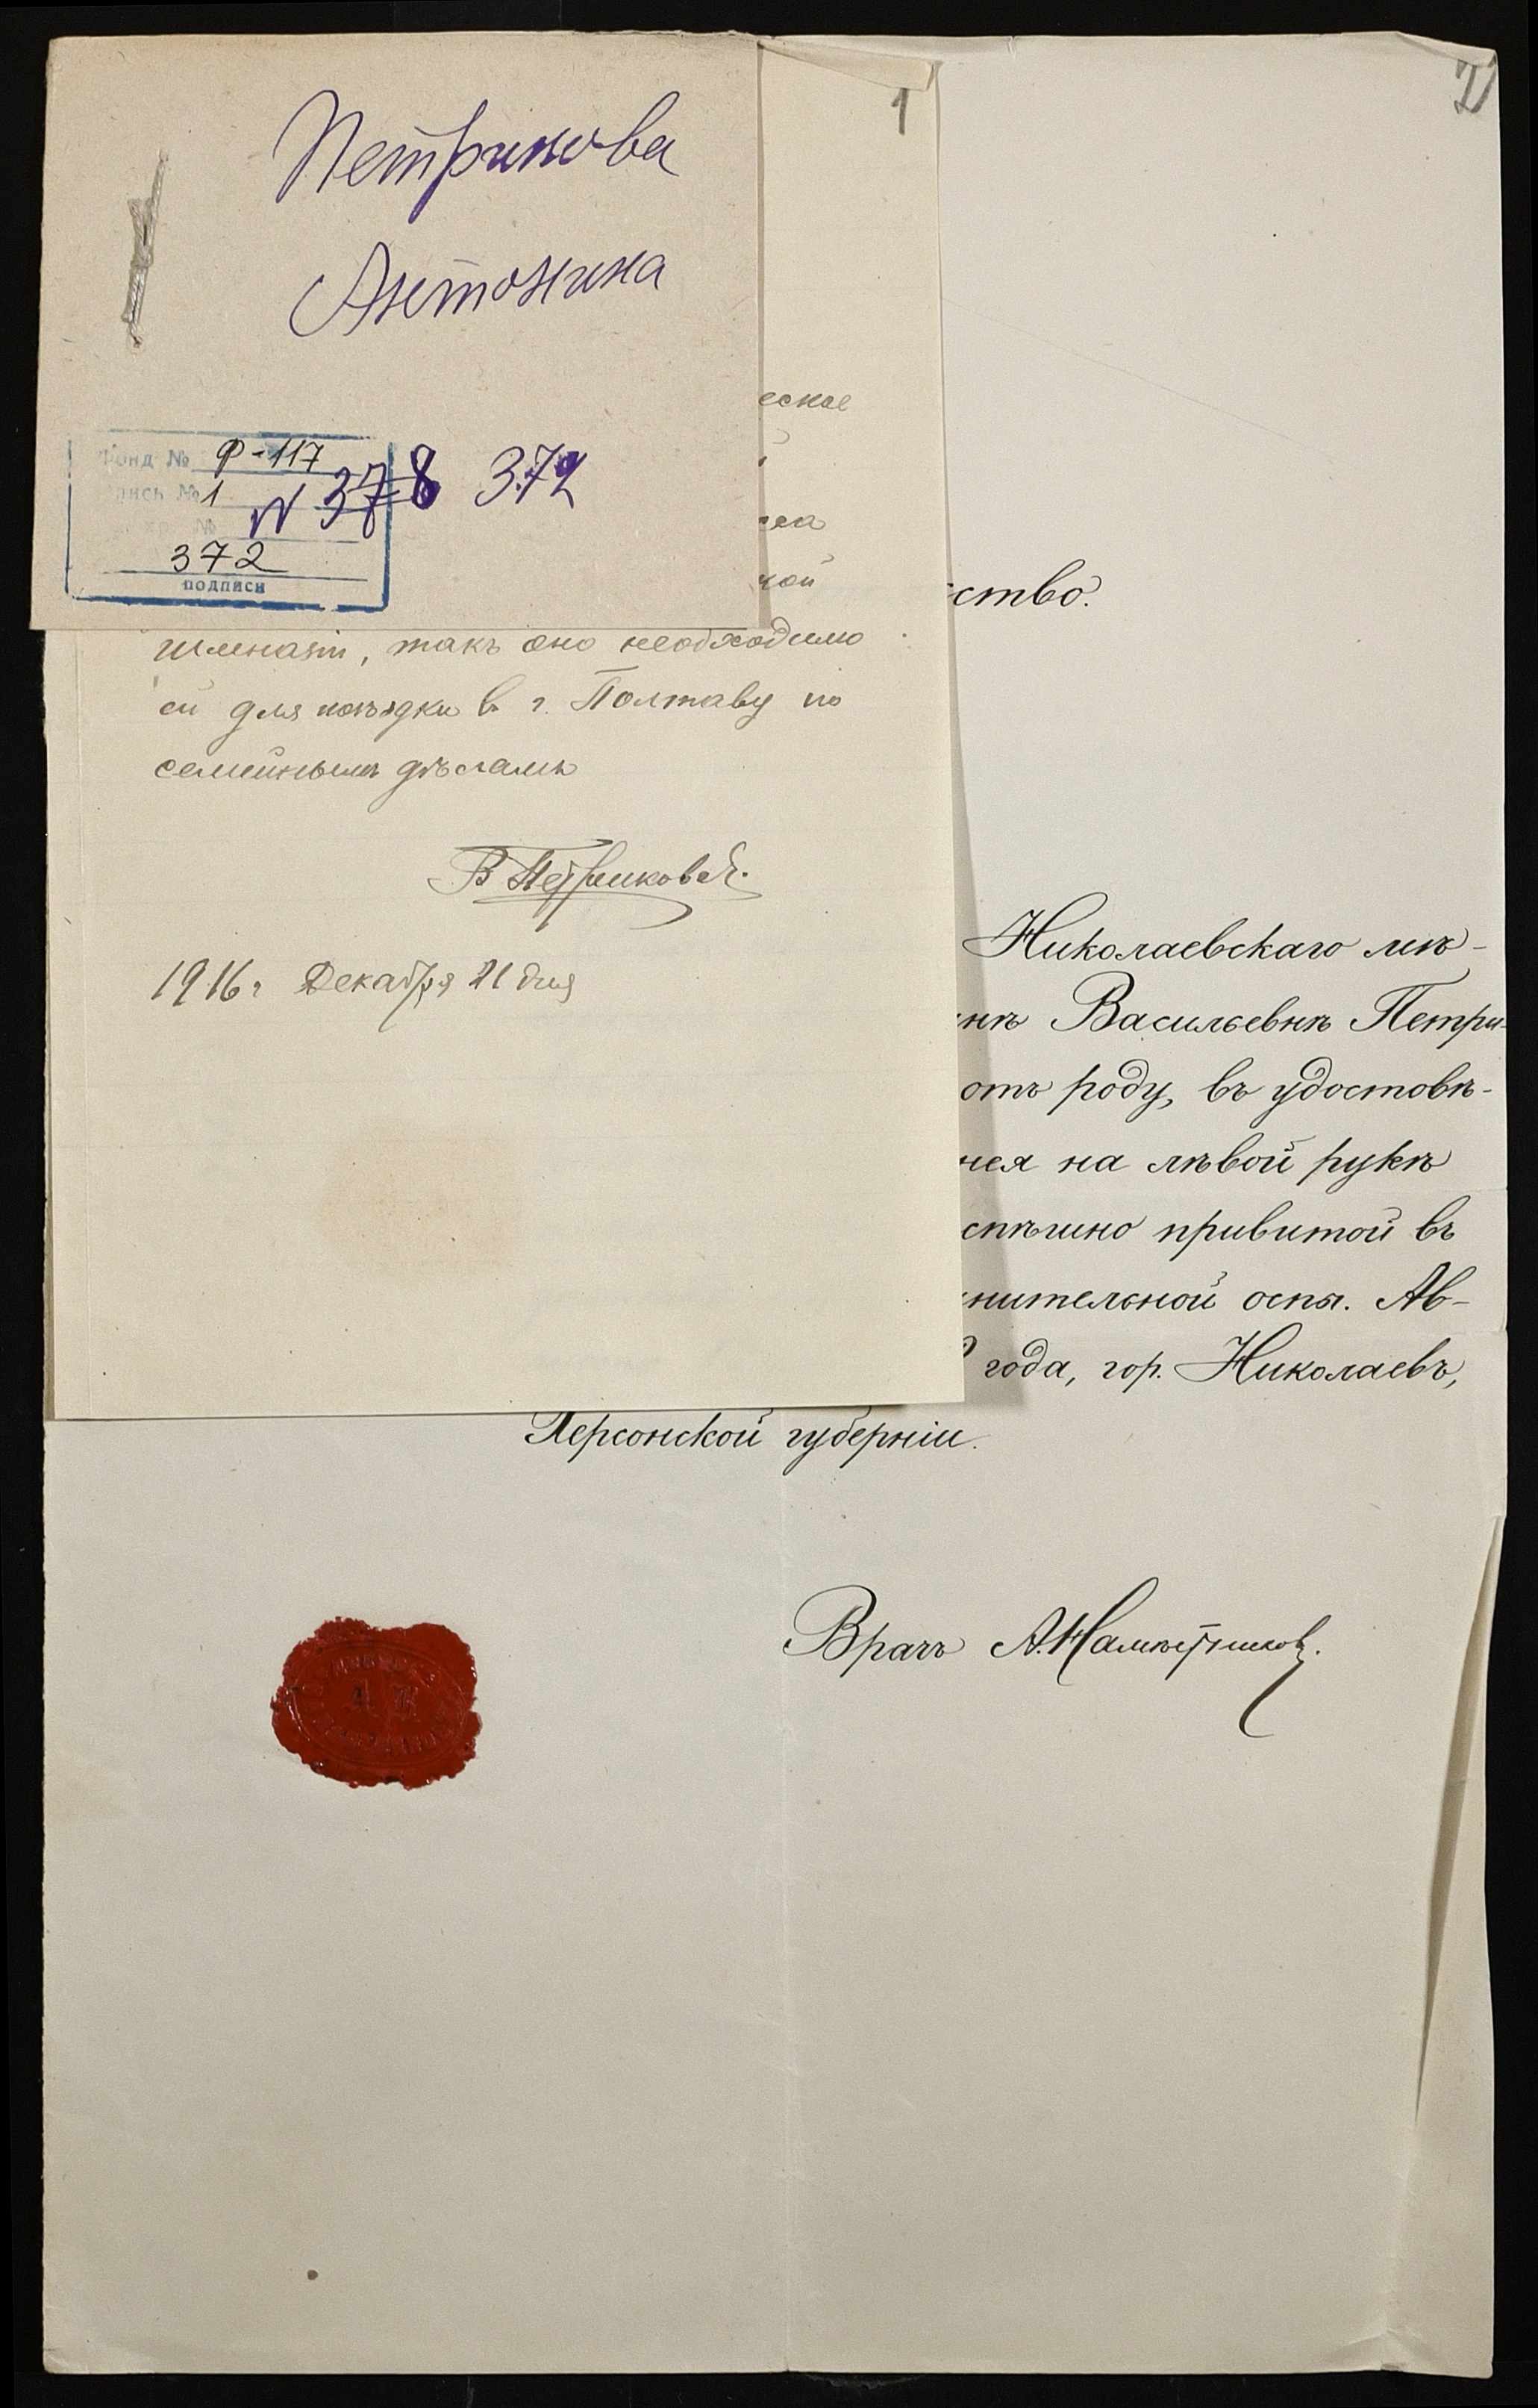 Петрикова
Антонина
Фонд № Ф-117
пись № 1
N 378 372
372
подписи
1
еское
кой
гимназіи, такъ оно необходимо
ей для поѣздки в г. Полтаву по
семейнымъ дѣламъ
В Петрикова.
1916 г Декабря 21 дня
2
ство.
Николаевскаго мѣ-
инѣ Васильевнѣ Петри-
отъ роду, въ удостовѣ-
нея на лѣвой рукѣ
спѣшно привитой въ
нительной оспы. Ав-
года, гор. Николаевъ,
Херсонской губерніи.
Врачъ А.